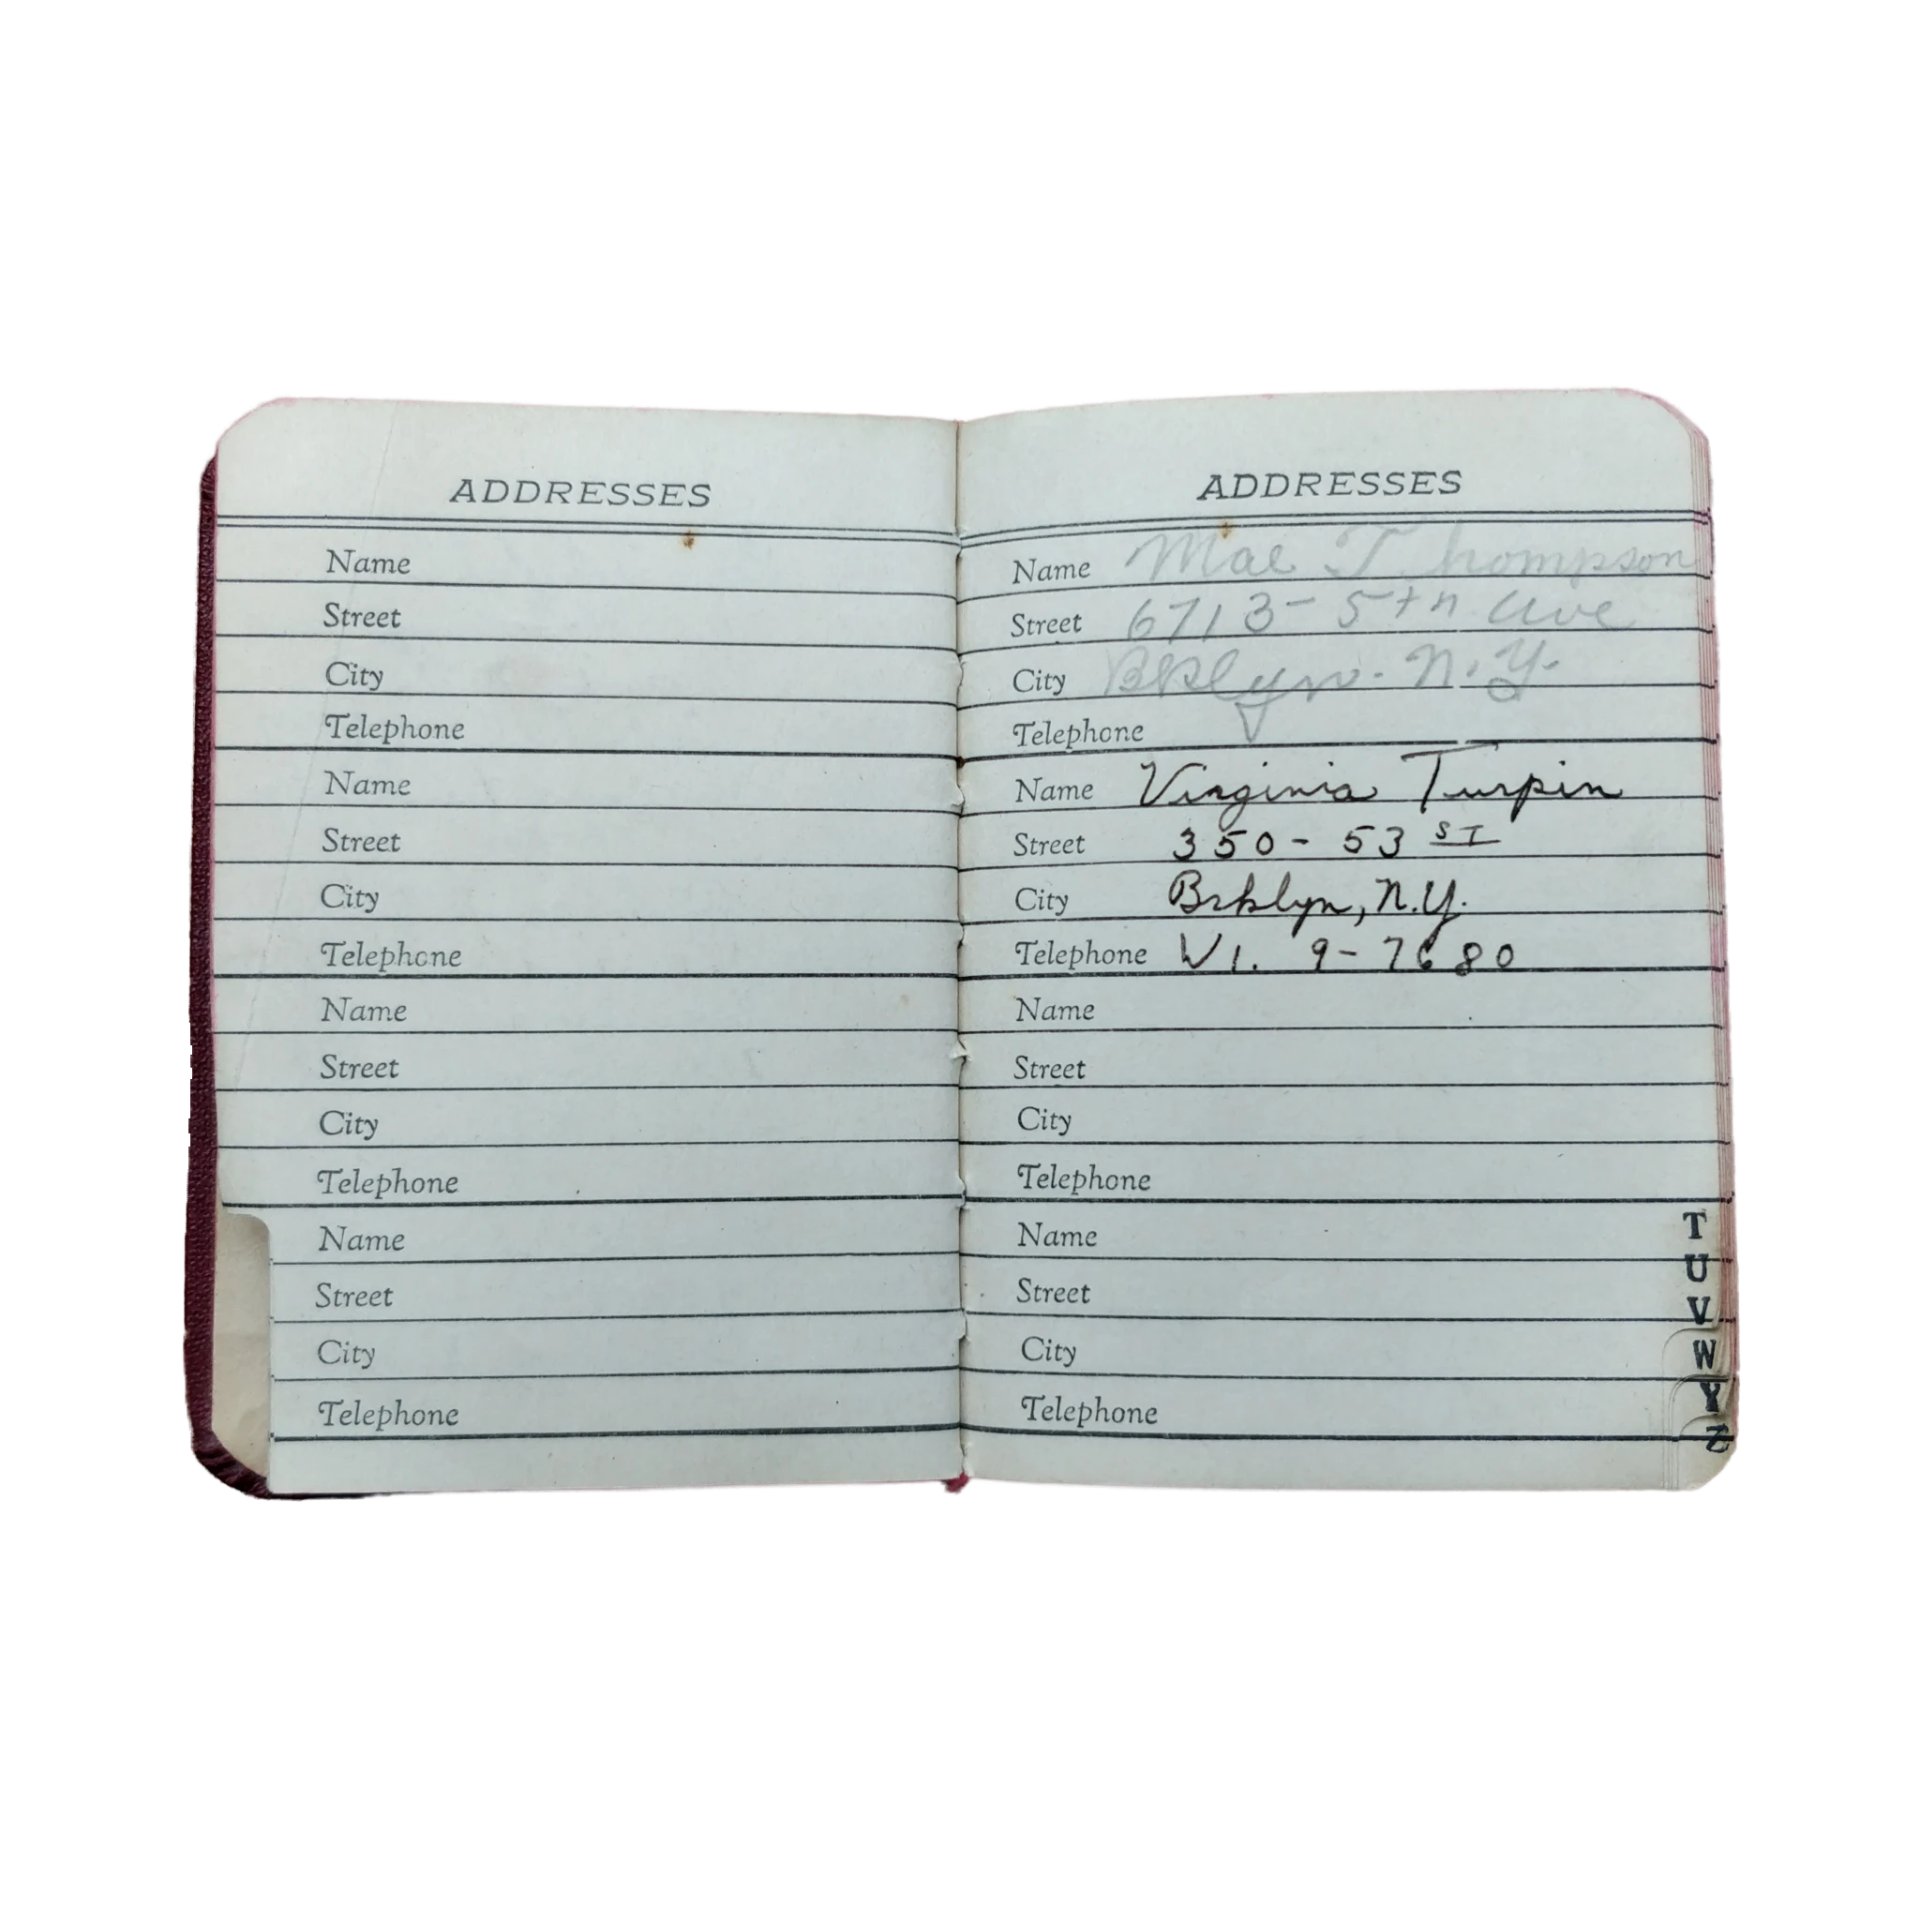 ADDRESSES
Name
Street
City
Telephone
Name
Street
City
Telephone
Name
Street
City
Telephone
Name
Street
City
Telephone
ADDRESSES
Name Mae Thompson
Street 6713 - 5th Ave
City Bklyn. N.Y.
Telephone
Name Virginia Turpin
Street 350 - 53 ST
City Brklyn, N.Y.
Telephone VI. 9-7680
Name
Street
City
Telephone
Name
Street
City
Telephone
T
U
V
W
Y
Z